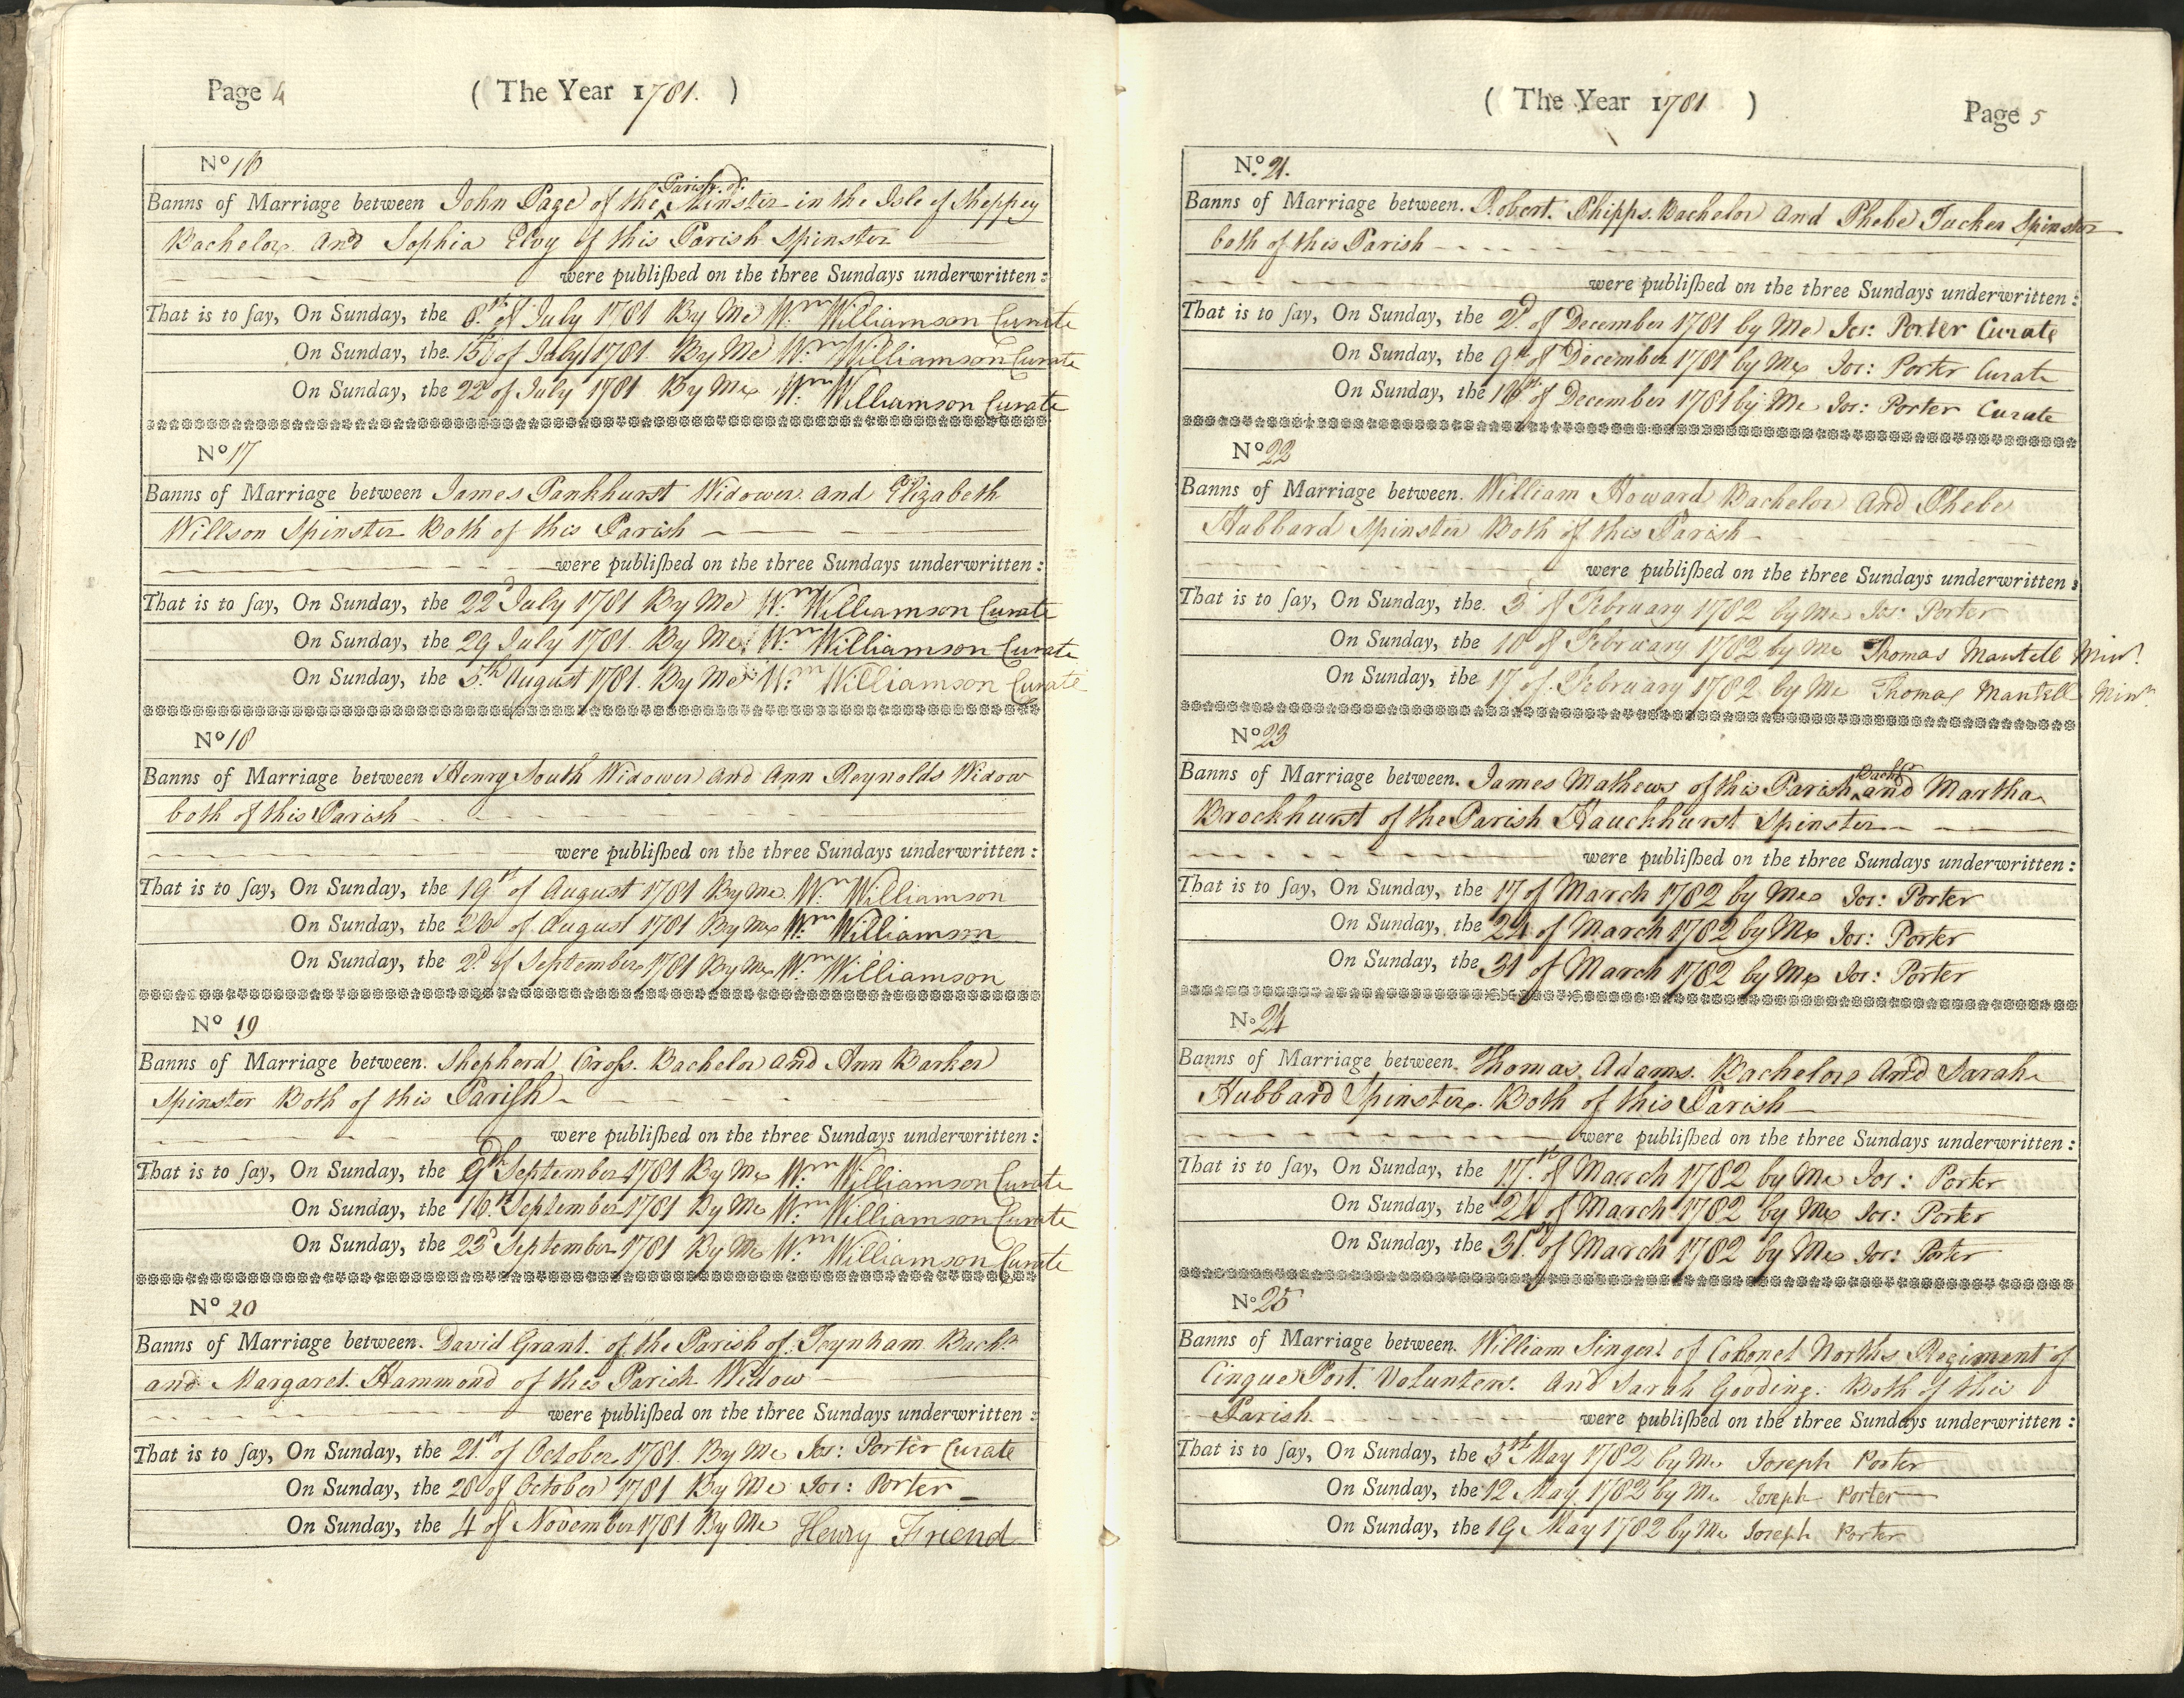 Page 4
( The Year 1781. )
No 16
Banns of Marriage between John Page of the Parish of Minster in the Isle of Sheppey
Bachelor And Sophia Elvy of this Parish Spinster
were publiſhed on the three Sundays underwritten:
That is to ſay, On Sunday, the 8th of July 1781 By Me Wm Williamson Curate
On Sunday, the 15 of July 1781. By Me Wm Williamson Curate
On Sunday, the 22d of July 1781 By Me Wm Williamson Curate
No 17
Banns of Marriage between James Pankhurst Widower and Elizabeth
Willson Spinster Both of this Parish
were publiſhed on the three Sundays underwritten:
That is to ſay, On Sunday, the 22d July 1781 By Me Wm Williamson Curate
On Sunday, the 29 July 1781. By Me Wm Williamson Curate
On Sunday, the 5th August 1781. By Me Wm Williamson Curate
No 18
Banns of Marriage between Henry South Widower and Ann Reynolds Widow
both of this Parish
were publiſhed on the three Sundays underwritten:
That is to ſay, On Sunday, the 19th of August 1781 By Me Wm Williamson
On Sunday, the 26 of August 1781 By Me Wm Williamson
On Sunday, the 2d of September 1781 By Me Wm Williamson
No 19
Banns of Marriage between. Shepherd Croſs. Bachelor and Ann Barker
Spinster Both of this Pariſh
were publiſhed on the three Sundays underwritten:
That is to ſay, On Sunday, the 9th September 1781 By Me Wm Williamson Curate
On Sunday, the 16th September 1781 By Me Wm Williamson Curate
On Sunday, the 23d September 1781 By Me Wm Williamson Curate
No 20
Banns of Marriage between. David Grant. of the Parish of Teynham Bachr
and Margaret Hammond of this Parish Widow
were publiſhed on the three Sundays underwritten:
That is to ſay, On Sunday, the 21st of October 1781. By Me Jos: Porter Curate
On Sunday, the 28 of October 1781 By Me Jos: Porter
On Sunday, the 4 of November 1781 By Me Henry Friend
( The Year 1781 )
Page 5
No. 21.
Banns of Marriage between. Robert Phipps. Bachelor And Phebe Tucker Spinster
both of this Parish
were publiſhed on the three Sundays underwritten:
That is to ſay, On Sunday, the 2d of December 1781 by Me Jos: Porter Curate
On Sunday, the 9th of December 1781 by Me Jos: Porter Curate
On Sunday, the 16th of December 1781 by Me Jos: Porter Curate
No 22
Banns of Marriage between. William Howard Bachelor And Phebe
Hubbard Spinster Both of this Parish
were publiſhed on the three Sundays underwritten:
That is to ſay, On Sunday, the. 3d of February 1782 by Me Jos: Porter
On Sunday, the 10 of February 1782 by Me Thomas Mantell Minr.
On Sunday, the 17 of February 1782 by Me Thomas Mantell Minr.
No 23
Banns of Marriage between. James Mathews of this Parish Bachr and Martha
Brockhurst of the Parish Hauckhurst Spinster
were publiſhed on the three Sundays underwritten:
That is to ſay, On Sunday, the 17 of March 1782 by Me Jos: Porter
On Sunday, the 24 of March 1782 by Me Jos: Porter
On Sunday, the 31 of March 1782 by Me Jos: Porter
No 24
Banns of Marriage between. Thomas Adams. Bachelor And Sarah
Hubbard Spinster. Both of this Parish
were publiſhed on the three Sundays underwritten:
That is to ſay, On Sunday, the 17th of March 1782 by Me Jos: Porter
On Sunday, the 24 of March 1782 by Me Jos: Porter
On Sunday, the 31st of March 1782 by Me Jos: Porter
No 25
Banns of Marriage between. William Singer of Colonel Norths Regiment of
Cinque Port. Volunteers. And Sarah Gooding. Both of this
Parish were publiſhed on the three Sundays underwritten:
That is to ſay, On Sunday, the 5th May 1782 by Me Joseph Porter
On Sunday, the 12 May 1782 by Me Joseph Porter
On Sunday, the 19 May 1782 by Me Joseph Porter